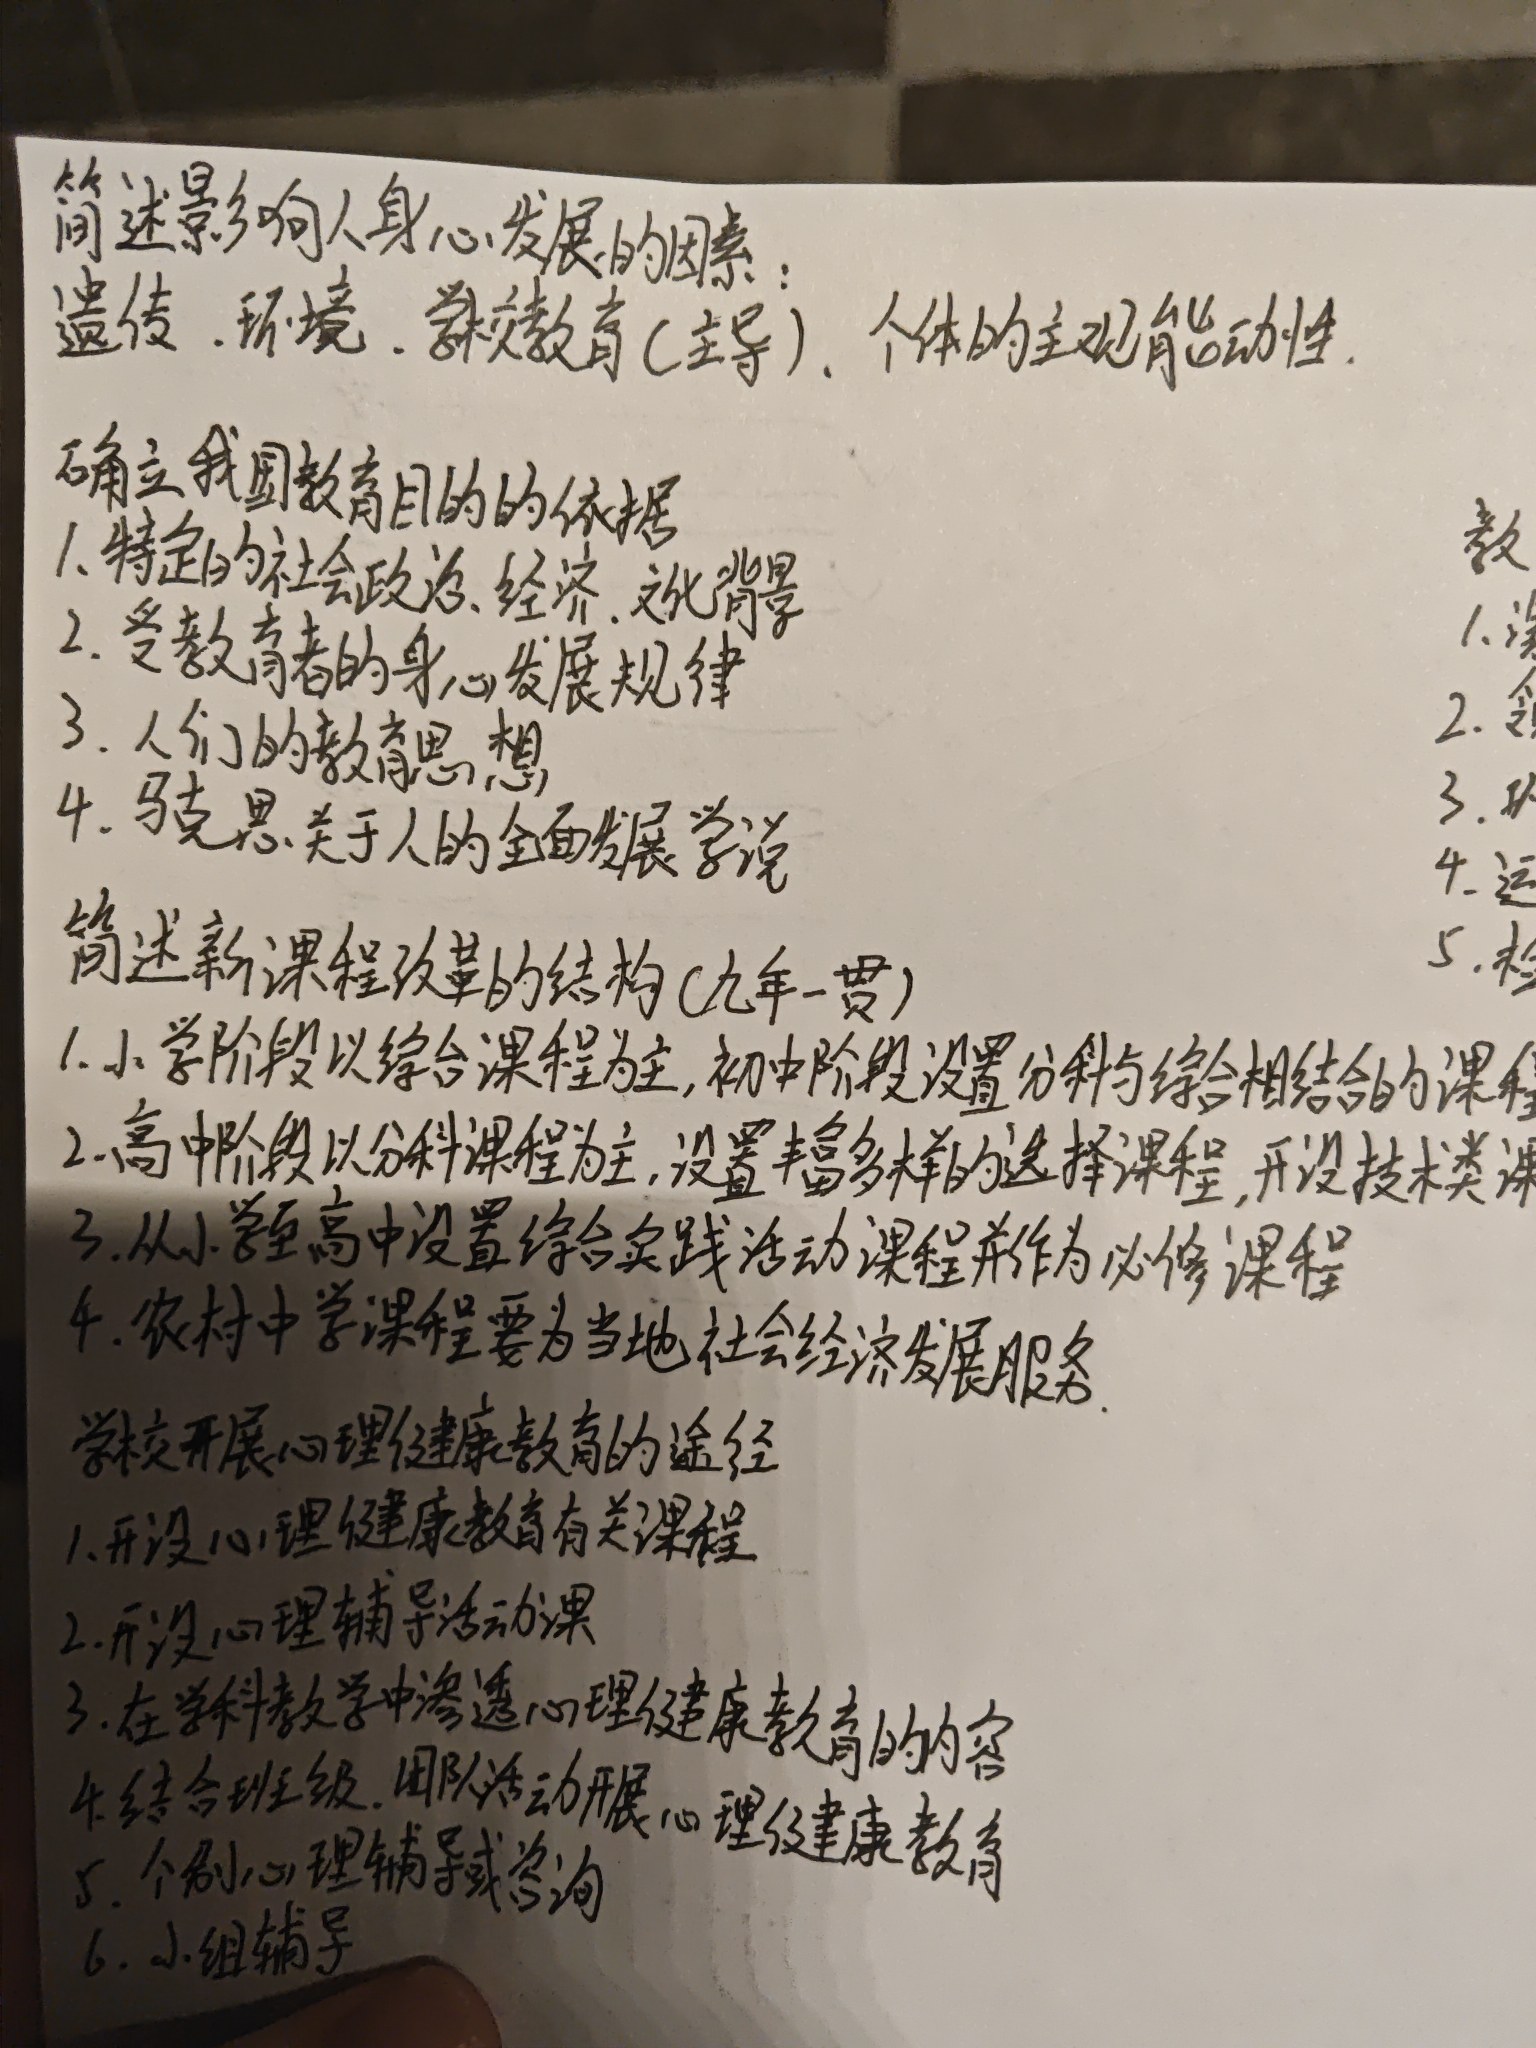 简述影响人身心发展的因素:
遗传、环境、学校教育(主导)、个体的主观能动性.
确立我国教育目的的依据
1、特定的社会政治、经济、文化背景
2.受教育者的身心发展规律
3.人们的教育思想
4.马克思关于人的全面发展学说
简述新课程改革的结构(九年一贯)
1.小学阶段以综合课程为主,初中阶段设置分科与综合相结合的课程
2.高中阶段以分科课程为主,设置丰富多样的选择课程,开设技术类课
3.从小学至高中设置综合实践活动课程并作为必修课程
4.农村中学课程要为当地社会经济发展服务.
学校开展心理健康教育的途径
1、开设心理健康教育有关课程
2.开设心理辅导活动课
3.在学科教学中渗透心理健康教育的内容
4.结合班级、团队活动开展心理健康教育
5.个别心理辅导或咨询
6.小组辅导
教
1.
2.
3.
4.运
5.检